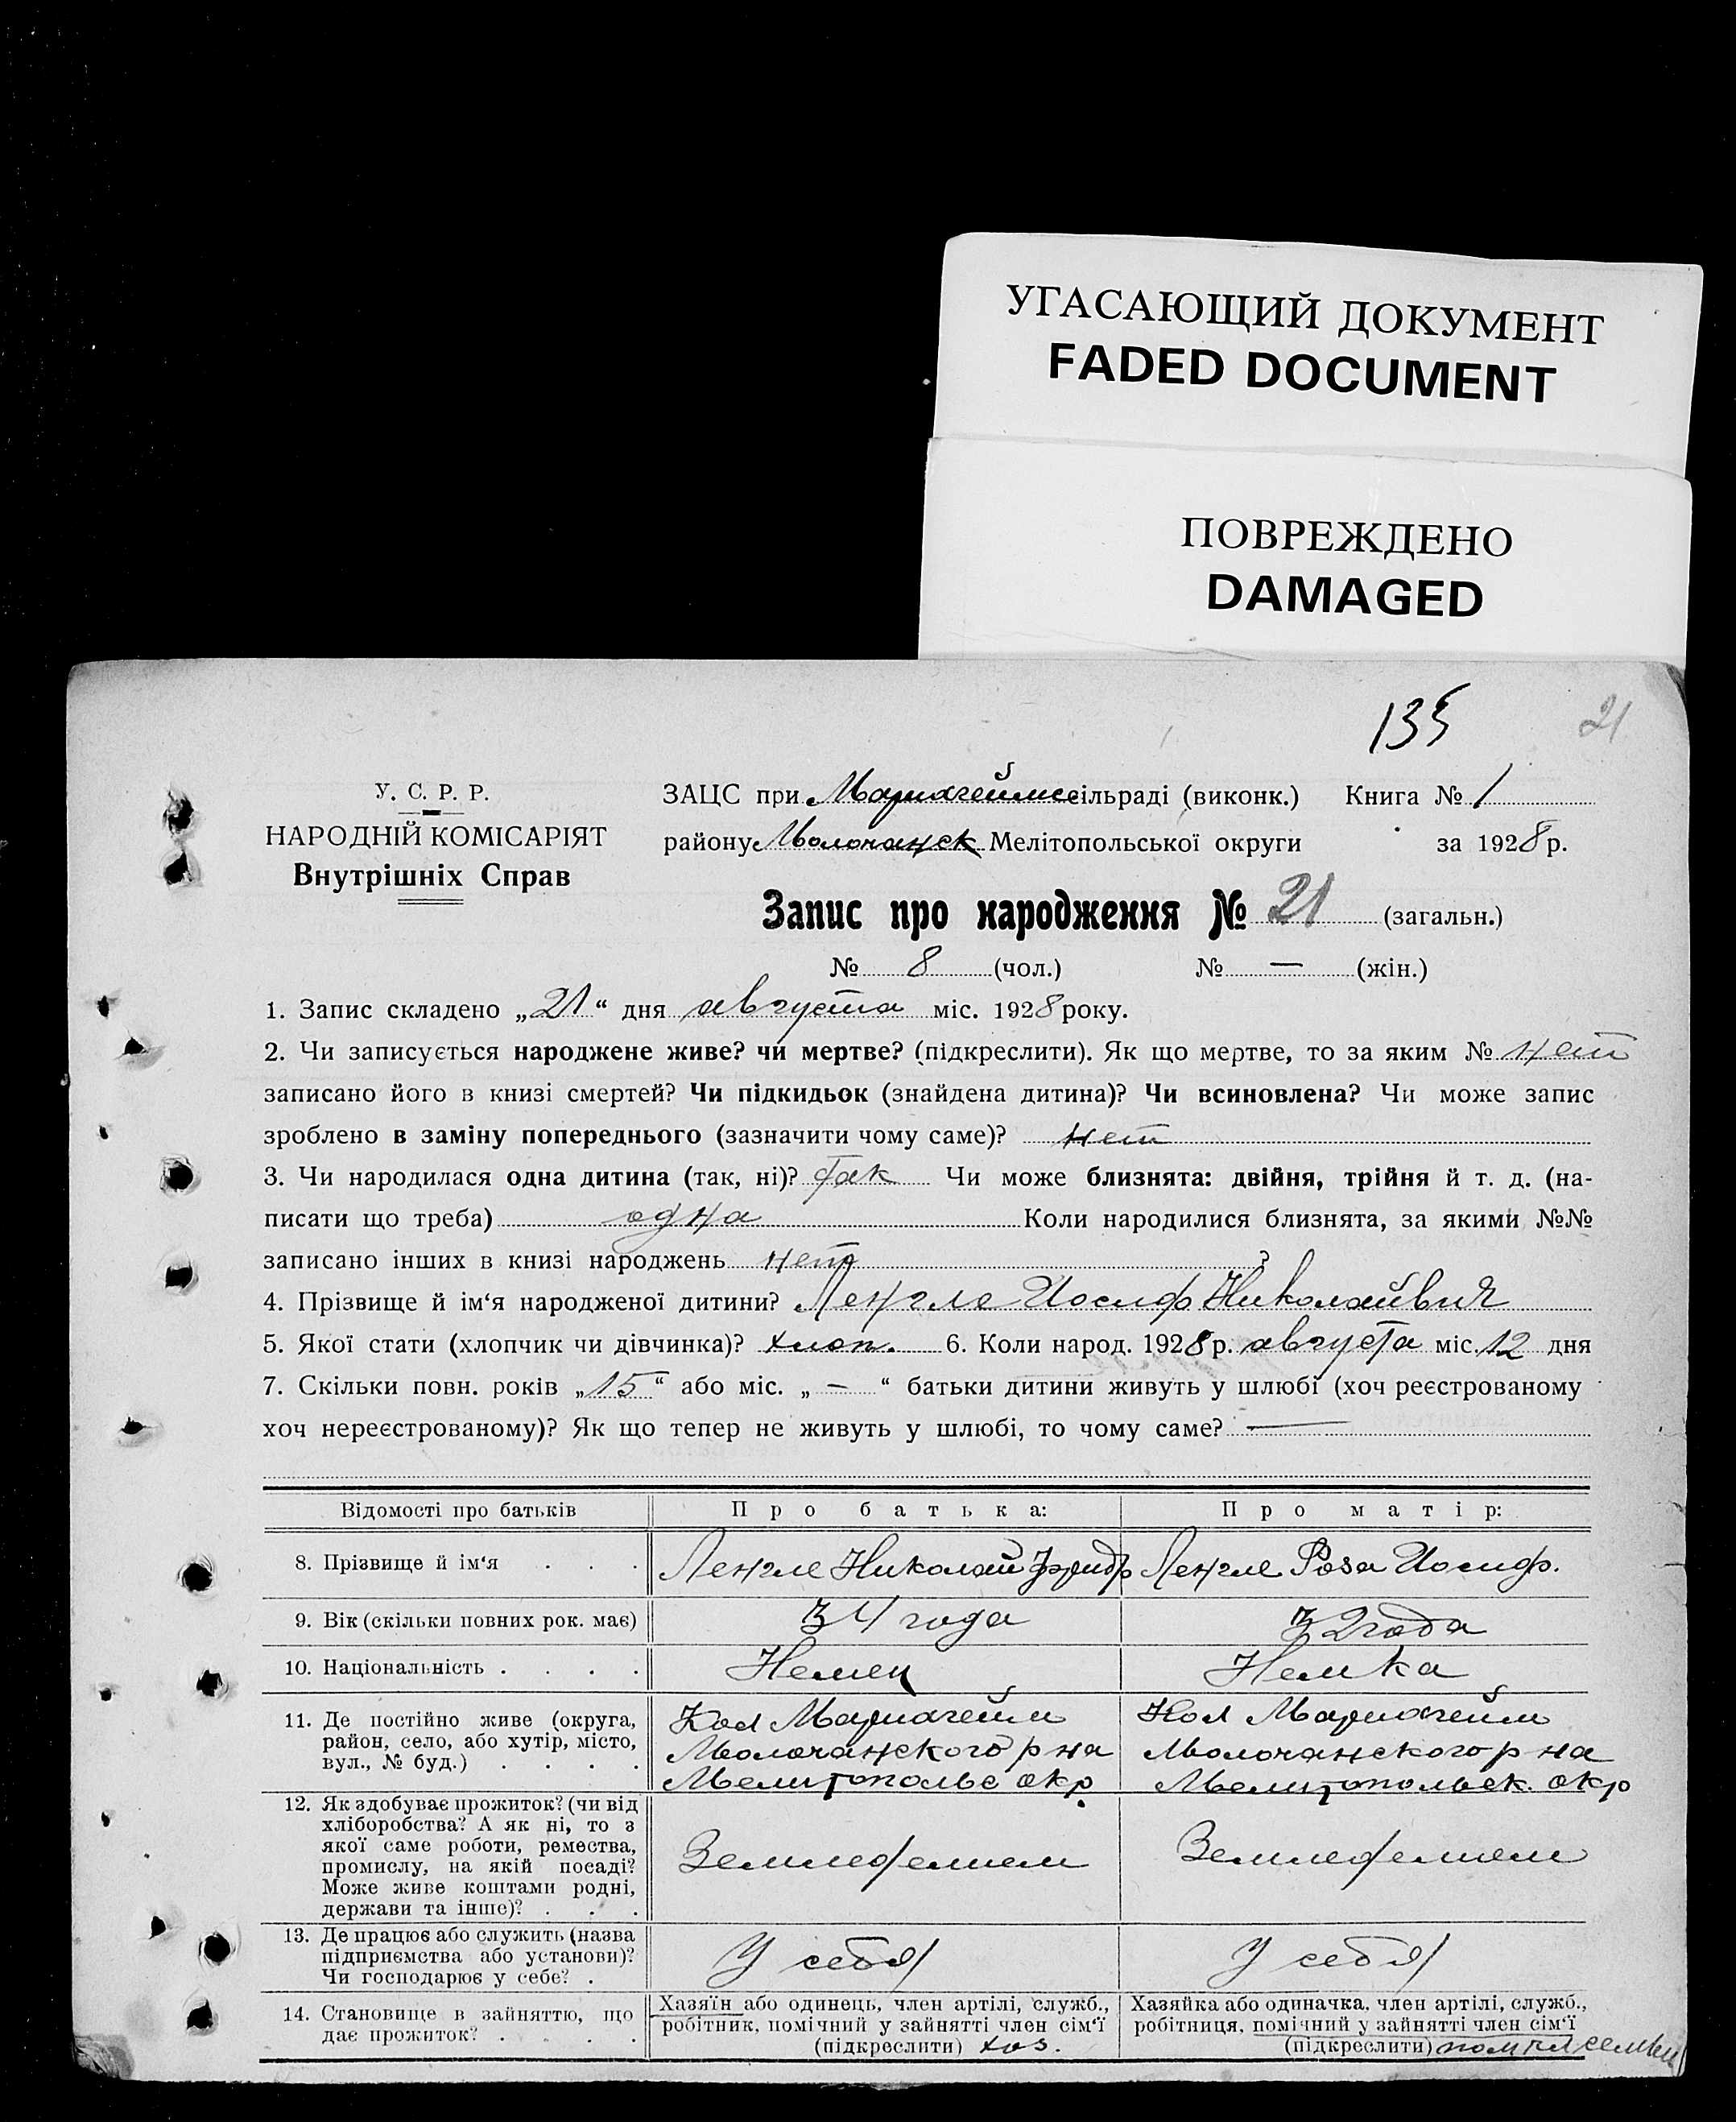 УГАСАЮЩИЙ ДОКУМЕНТ
FADED DOCUMENT
ПОВРЕЖДЕНО
DAMAGED
135 21
У. С. Р. Р.
НАРОДНІЙ КОМІСАРІЯТ
Внутрішніх Справ
ЗАЦС при Мариагейм сільраді (виконк.) Книга № 1
району Молочанск Мелітопольської округи за 1928 р.
Запис про народження № 21 (загальн.)
№ 8 (чол.) № — (жін.)
1. Запис складено „21“ дня августа міс. 1928 року.
2. Чи записується народжене живе? чи мертве? (підкреслити). Як що мертве, то за яким № нет
записано його в книзі смертей? Чи підкидьок (знайдена дитина)? Чи всиновлена? Чи може запис
зроблено в заміну попереднього (зазначити чому саме)? нет
3. Чи народилася одна дитина (так, ні)? так Чи може близнята: двійня, трійня й т. д. (на-
писати що треба) одна Коли народилися близнята, за якими №№
записано інших в книзі народжень нет ?
4. Прізвище й ім‘я народженої дитини? Ленгле Иосиф Николайвич
5. Якої стати (хлопчик чи дівчинка)? хлоп. 6. Коли народ. 1928 р. августа міс. 12 дня
7. Скільки повн. років „15“ або міс. „ — “ батьки дитини живуть у шлюбі (хоч реєстрованому
хоч нереєстрованому)? Як що тепер не живуть у шлюбі, то чому саме? —
Відомості про батьків Про батька: Про матір:
8. Прізвище й ім‘я . . . Ленгле Николай Фридр Ленгле Роза Иосиф.
9. Вік (скільки повних рок. має) 34 года 32 года
10. Національність . . . . Немец Немка
11. Де постійно живе (округа, район, село, або хутір, місто, вул., № буд.) . . . .
Кол Мариагейм Кол Мариагейм
Молочанского р на Молочанского р на
Мелитопольс окр Мелитопольск. окр
12. Як здобуває прожиток? (чи від
хліборобства? А як ні, то з
якої саме роботи, ремества,
промислу, на якій посаді?
Може живе коштами родні,
держави та інше)? . . .
Земледелием Земледелием
13. Де працює або служить (назва
підприємства або установи)?
Чи господарює у себе? .
У себя У себя
14. Становище в зайняттю, що
дає прожиток? . . . .
Хазяїн або одинець, член артілі, служб.,
робітник, помічний у зайнятті член сім‘ї
(підкреслити) хоз.
Хазяйка або одиначка, член артілі, служб.,
робітниця, помічний у зайнятті член сім‘ї
(підкреслити) пом чл семьи